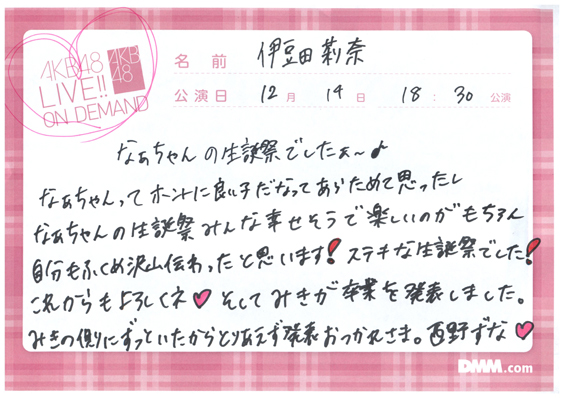 AKB48
LIVE!!
ON DEMAND
AKB
48
名前 伊豆田莉奈
公演日 12月 14日 18:30 公演
なぁちゃんの生誕祭でしたぁ〜♪
なぁちゃんってホントに良い子だなってあらためて思ったし
なぁちゃんの生誕祭みんな幸せそうで楽しいのがもちろん
自分もふくめ沢山伝わったと思います! ステキな生誕祭でした!
これからもよろしくネ♥ そしてみきが卒業を発表しました。
みきの側にずっといたからとりあえず発表おつかれさま。西野ずな♥
DMM.com